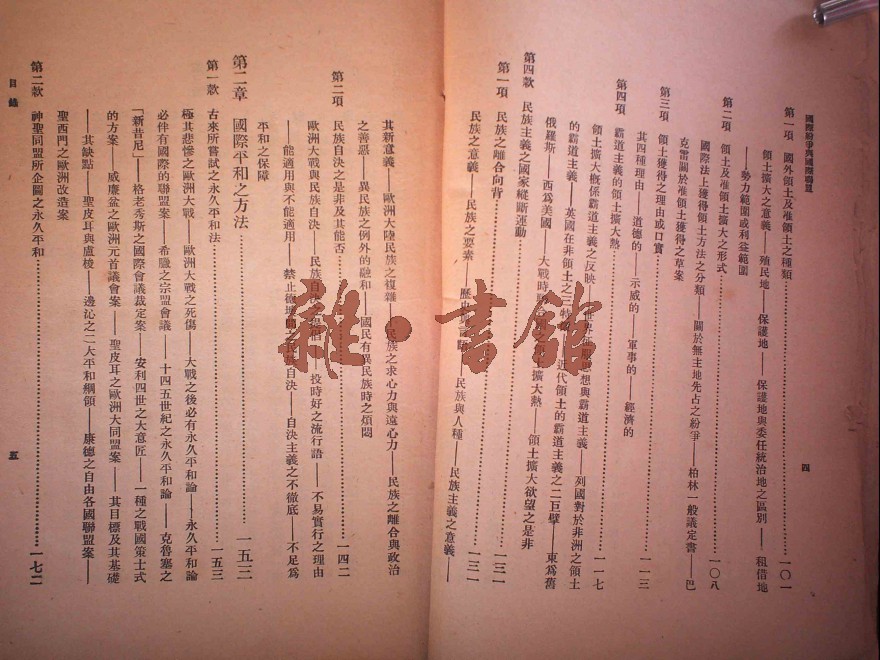 國際紛爭與國際聯盟
四
第一項 國外領土及准領土之種類………一〇一
領土擴大之意義——殖民地——保護地——保護地與委任統治地之區別——租借地
——勢力範圍或利益範圍
第二項 領土及准領土擴大之形式………一〇八
國際法上獲得領土方法之分類——關於無主地先占之紛爭——柏林一般議定書——巴
克雷關於准領土獲得之草案
第三項 領土獲得之理由或口實………一一三
其四種理由——道德的——示威的——軍事的——經濟的
第四項 霸道主義的領土擴大熱………一一七
領土擴大概係霸道主義之反映——思想與霸道主義——列國對於非洲之領土
的霸道主義——英國在非領土之三特——近代領土的霸道主義之二巨壁——東為舊
俄羅斯——西為美國——大戰時擴大熱——領土擴大欲望之是非
第四款 民族主義之國家縱斷運動………一三一
第一項 民族之離合向背………一三一
民族之意義——民族之要素——歷史——民族與人種——民族主義之意義——
其新意義——歐洲大陸民族之複雜——民族之求心力與遠心力——民族之離合與政治
之善惡——異民族之例外的融和——國民有異民族時之煩悶
第二項 民族自決之是非及其能否………一四二
歐洲大戰與民族自決——民族自決之提倡——投時好之流行語——不易實行之理由
——能適用與不能適用——禁止德奧之民族自決——自決主義之不徹底——不足為
平和之保障
第二章 國際平和之方法………一五三
第一款 古來所嘗試之永久平和法………一五三
極其悲慘之歐洲大戰——歐洲大戰之死傷——大戰之後必有永久平和論——永久平和論
必伴有國際的聯盟案——希臘之宗盟會議——十四五世紀之永久平和論——克魯塞之
「新昔尼」——格老秀斯之國際會議裁定案——安利四世之大意匠——一種之戰國策士式
的方案——威廉盆之歐洲元首議會案——聖皮耳之歐洲大同盟案——其目標及其基礎
——其缺點——聖皮耳與盧梭——邊沁之二大平和綱領——康德之自由各國聯盟案——
聖西門之歐洲改造案
第二款 神聖同盟所企圖之永久平和………一七二
目錄
五
雜·書館